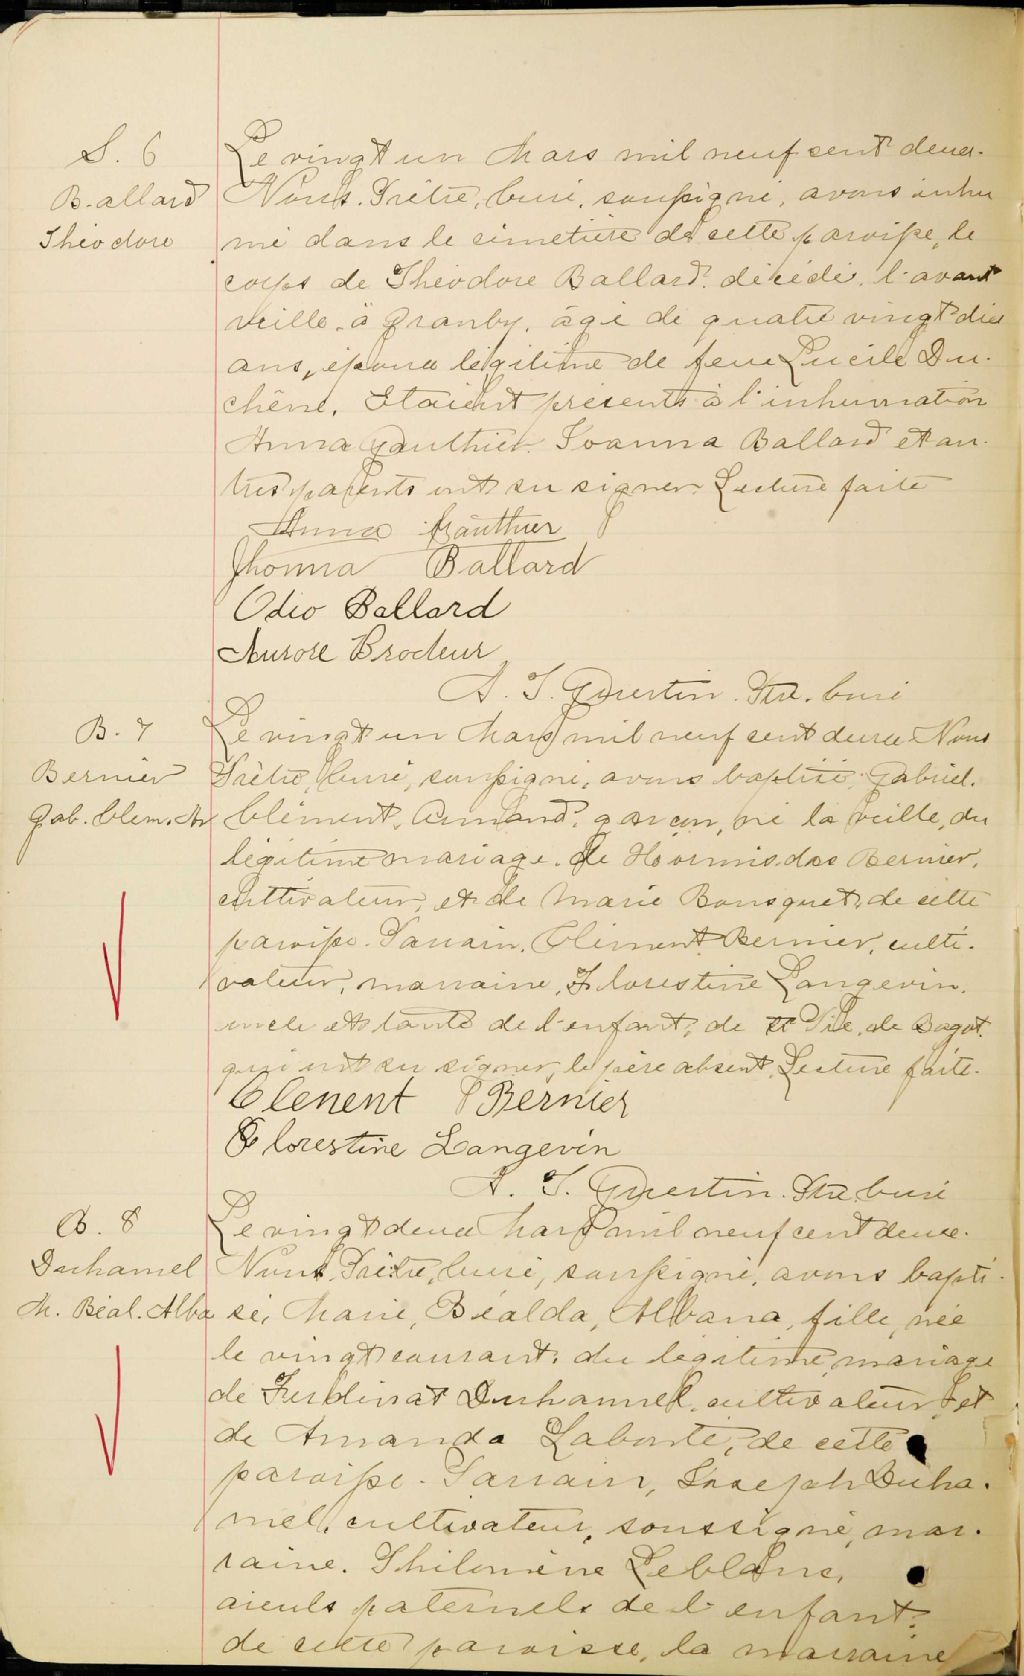 S. 6
Ballard
Théodore
Le vingt un Mars mil neuf cent deux.
Nous, Prêtre, curé, soussigné, avons inhu
mé dans le cimetière de cette paroisse, le
corps de Théodore Ballard, décédé, l'avant
veille, à Granby, âgé de quatre vingt dix
ans, époux légitime de feue Lucile Du-
chêne. Etaient présents à l'inhumation
Anna Gauthier Joanna Ballard et au-
tres parents ont su signer. Lecture faite
Anna Gauthier
Jhonna Ballard
Odio Ballard
Aurore Brodeur
Ptre. curé
B. 7
Bernier
Gab. Clem. Ar
Le vingt un Mars mil neuf cent deux Nous
Prêtre, curé, soussigné, avons baptisé, Gabriel.
Clément, Armand, garçon, né la veille, du
légitime mariage de Hormisdas Bernier,
cultivateur, et de Marie Bousquet, de cette
paroisse. Parrain, Clément Bernier, culti-
vateur, marraine, Florestine Langevin,
oncle et tante de l'enfant, de St Pie, de Bagot,
qui ont su signer, le père absent. Lecture faite.
Clenent Bernier
Florestine Langevin
Ptre curé
B. 8
Duhamel
M. Béal. Alba
Le vingt deux Mars mil neuf cent deux.
Nous, Prêtre, curé, soussigné, avons bapti-
sé, Marie, Béalda, Albana, fille, née
le vingt courant, du légitime mariage
de Ferdinat Duhamel, cultivateur, et
de Amanda Labonté, de cette
paroisse. Parrain, Joseph Duha-
mel, cultivateur, soussigné, mar-
raine. Philomène Leblanc,
aieuls paternels de l'enfant,
de cette paroisse, la marraine